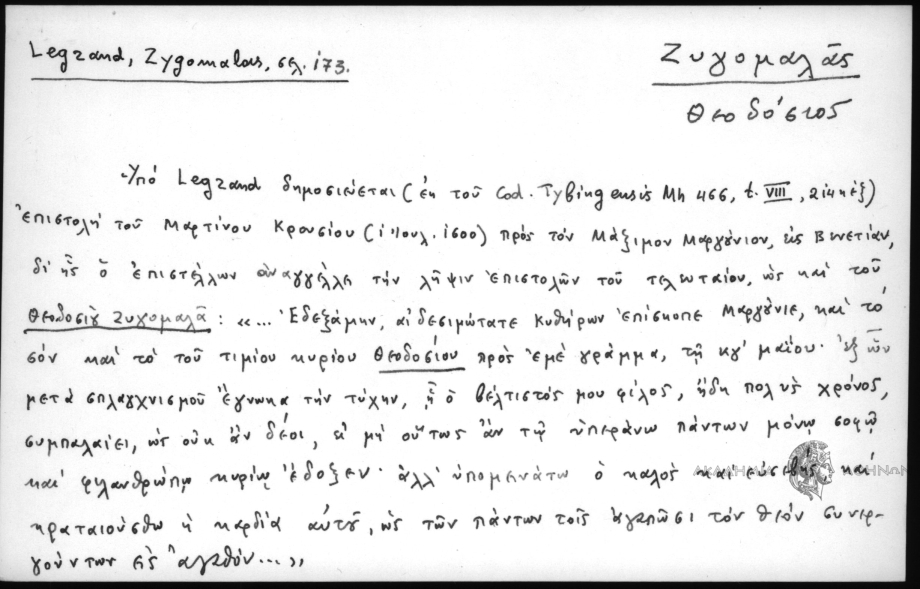 Legrand, Zygomalas, σελ. 173.
Ζυγομαλᾶς
Θεοδόσιος
Ὑπό Legrand δημοσιεύεται (ἐκ τοῦ Cod. Tybingensis Mh 466, t. VIII, 214 κἑξ)
Ἐπιστολή τοῦ Μαρτίνου Κρουσίου (1 Ἰουλ. 1600) πρός τόν Μάξιμον Μαργούνιον, εἰς Βενετίαν,
δι' ἧς ὁ ἐπιστέλλων ἀναγγέλλει τήν λῆψιν ἐπιστολῶν τοῦ τελευταίου, ὡς καί τοῦ
Θεοδοσίου Ζυγομαλᾶ : «... Ἐδεξάμην, αἰδεσιμώτατε Κυθήρων ἐπίσκοπε Μαργούνιε, καί τό
σόν καί τό τοῦ τιμίου κυρίου Θεοδοσίου πρός ἐμέ γράμμα, τῇ κγ' μαΐου· ἐξ ὧν
μετά σπλαγχνισμοῦ ἔγνωκα τήν τύχην, ᾗ ὁ βέλτιστός μου φίλος, ἤδη πολύς χρόνος,
συμπαλαίει, ὡς οὐκ ἄν δέοι, εἰ μή οὕτως ἄν τῷ ὑπεράνω πάντων μόνῳ σοφῷ
καί φιλανθρώπῳ κυρίῳ ἔδοξεν· ἀλλ' ὑπομενάτω ὁ καλός καί εὐσεβής καί
κραταιούσθω ἡ καρδία αὐτοῦ, ὡς τῶν πάντων τοῖς ἀγαπῶσι τόν θεόν συνερ-
γούντων εἰς ἀγαθόν...»
ΑΚΑΔΗΜΙΑ ΑΘΗΝΩΝ